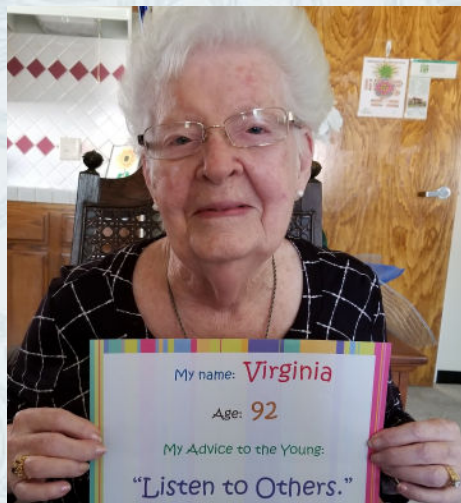 My name: Virginia
Age: 92
My Advice to the Young:
“Listen to Others.”